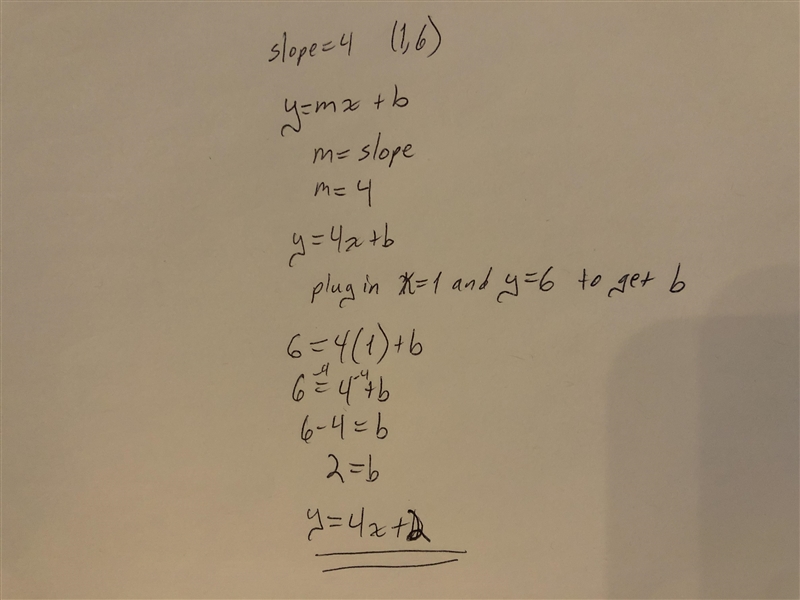 slope=4 (1,6)
y=mx+b
m=slope
m=4
y=4x+b
plug in x=1 and y=6 to get b
6=4(1)+b
6-4=4-4+b
6-4=b
2=b
y=4x+2